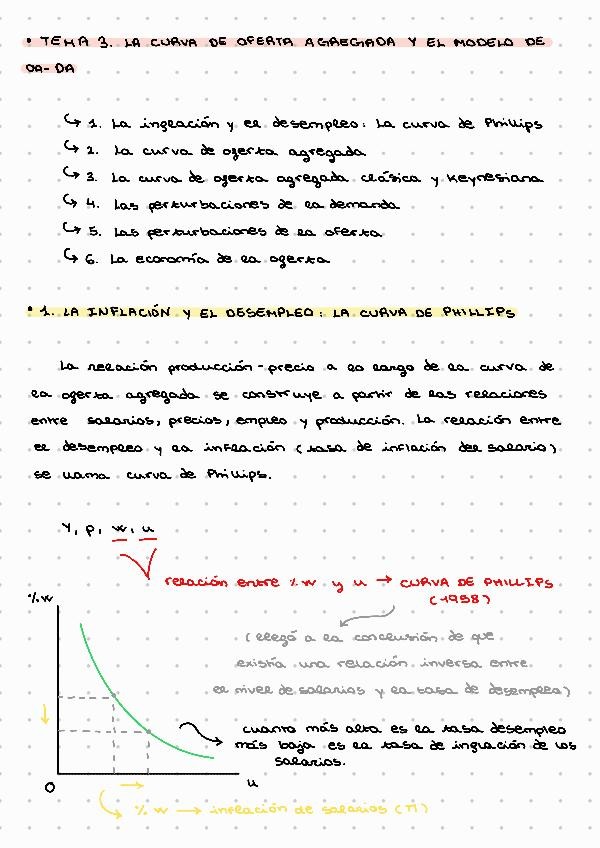 • TEMA 3. LA CURVA DE OFERTA AGREGADA Y EL MODELO DE
OA-DA
↳ 1. La inflación y el desempleo: La curva de Phillips
↳ 2. La curva de oferta agregada
↳ 3. La curva de oferta agregada clásica y Keynesiana
↳ 4. Las perturbaciones de la demanda
↳ 5. Las perturbaciones de la oferta
↳ 6. La economía de la oferta
• 1. LA INFLACIÓN Y EL DESEMPLEO: LA CURVA DE PHILLIPS
La relación producción-precio a lo largo de la curva de
la oferta agregada se construye a partir de las relaciones
entre salarios, precios, empleo y producción. La relación entre
el desempleo y la inflación (tasa de inflación del salario)
se llama curva de Phillips.
Y, P, w, u
relación entre %w y u → CURVA DE PHILLIPS
(1958)
%w
(llegó a la conclusión de que
existía una relación inversa entre
el nivel de salarios y la tasa de desempleo)
cuanto más alta es la tasa desempleo
más baja es la tasa de inflación de los
salarios.
O
u
% w → inflación de salarios (π)